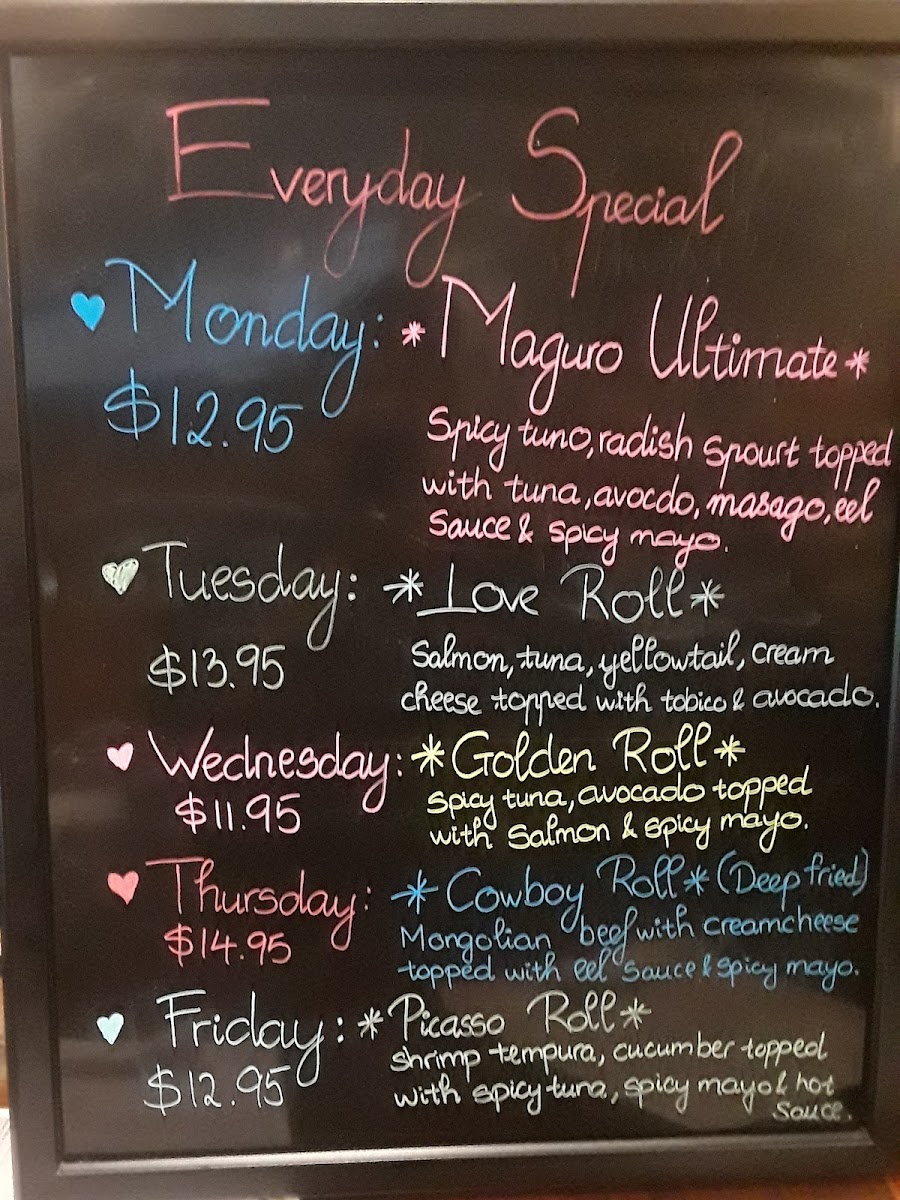 Everyday Special
♥ Monday: *Maguro Ultimate*
$12.95
Spicy tuno, radish spourt topped
with tuna, avocdo, masago, eel
sauce & spicy mayo.
♥ Tuesday: *Love Roll*
$13.95
Salmon, tuna, yellowtail, cream
cheese topped with tobico & avocado.
♥ Wednesday: *Golden Roll*
$11.95
spicy tuna, avocado topped
with salmon & spicy mayo.
♥ Thursday: *Cowboy Roll* (Deep fried)
$14.95
Mongolian beef with creamcheese
topped with eel sauce & spicy mayo.
♥ Friday: *Picasso Roll*
$12.95
shrimp tempura, cucumber topped
with spicy tuna, spicy mayo & hot
sauce.